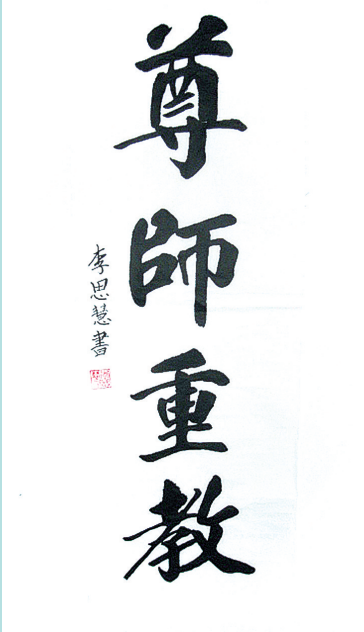 尊師重教
李思慧書